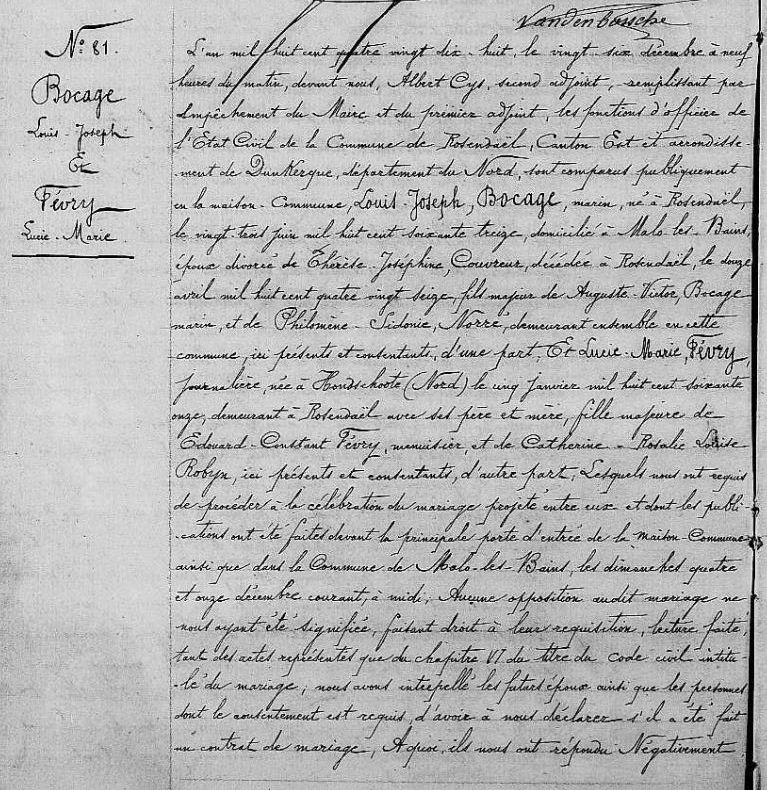 Vandenbussche
N° 81.
Bocage
Louis-Joseph
Et
Févry
Lucie-Marie.
L'an mil huit cent quatre vingt dix-huit, le vingt-six décembre à neuf
heures du matin, devant nous, Albert Cys, second adjoint, remplissant par
empêchement du Maire et du premier adjoint, les fonctions d'officier de
l'Etat Civil de la Commune de Rosendaël, Canton Est et arrondisse-
-ment de Dunkerque, département du Nord, sont comparus publiquement
en la maison-Commune, Louis-Joseph, Bocage, marin, né à Rosendaël,
le vingt trois juin mil huit cent soixante treize, domicilié à Malo-les-Bains,
époux divorcé de Thérèse-Joséphine, Couvreur, décédée à Rosendaël, le douze
avril mil huit cent quatre vingt seize, fils majeur de Auguste-Victor, Bocage
marin, et de Philomène-Sidonie, Norré, demeurant ensemble en cette
commune, ici présents et consentants, d'une part, Et Lucie-Marie, Févry,
journalière, née à Hondschoote (Nord) le cinq Janvier mil huit cent soixante
onze, demeurant à Rosendaël avec ses père et mère, fille majeure de
Edouard-Constant Févry, menuisier, et de Catherine-Rosalie Louise
Robyn, ici présents et consentants, d'autre part, Lesquels nous ont requis
de procéder à la célébration du mariage projeté entre eux et dont les publi-
-cations ont été faites devant la principale porte d'entrée de la maison-Commune
ainsi que dans la Commune de Malo-les-Bains, les dimanches quatre
et onze décembre courant, à midi; Aucune opposition audit mariage ne
nous ayant été signifiée, faisant droit à leur requisition, lecture faite,
tant des actes représentés que du chapitre VI du titre du code civil intitu
-lé du mariage; nous avons intrepellé les futurs époux ainsi que les personnes
dont le consentement est requis, d'avoir à nous déclarer s'il a été fait
un contrat de mariage, A quoi, ils nous ont répondu Négativement